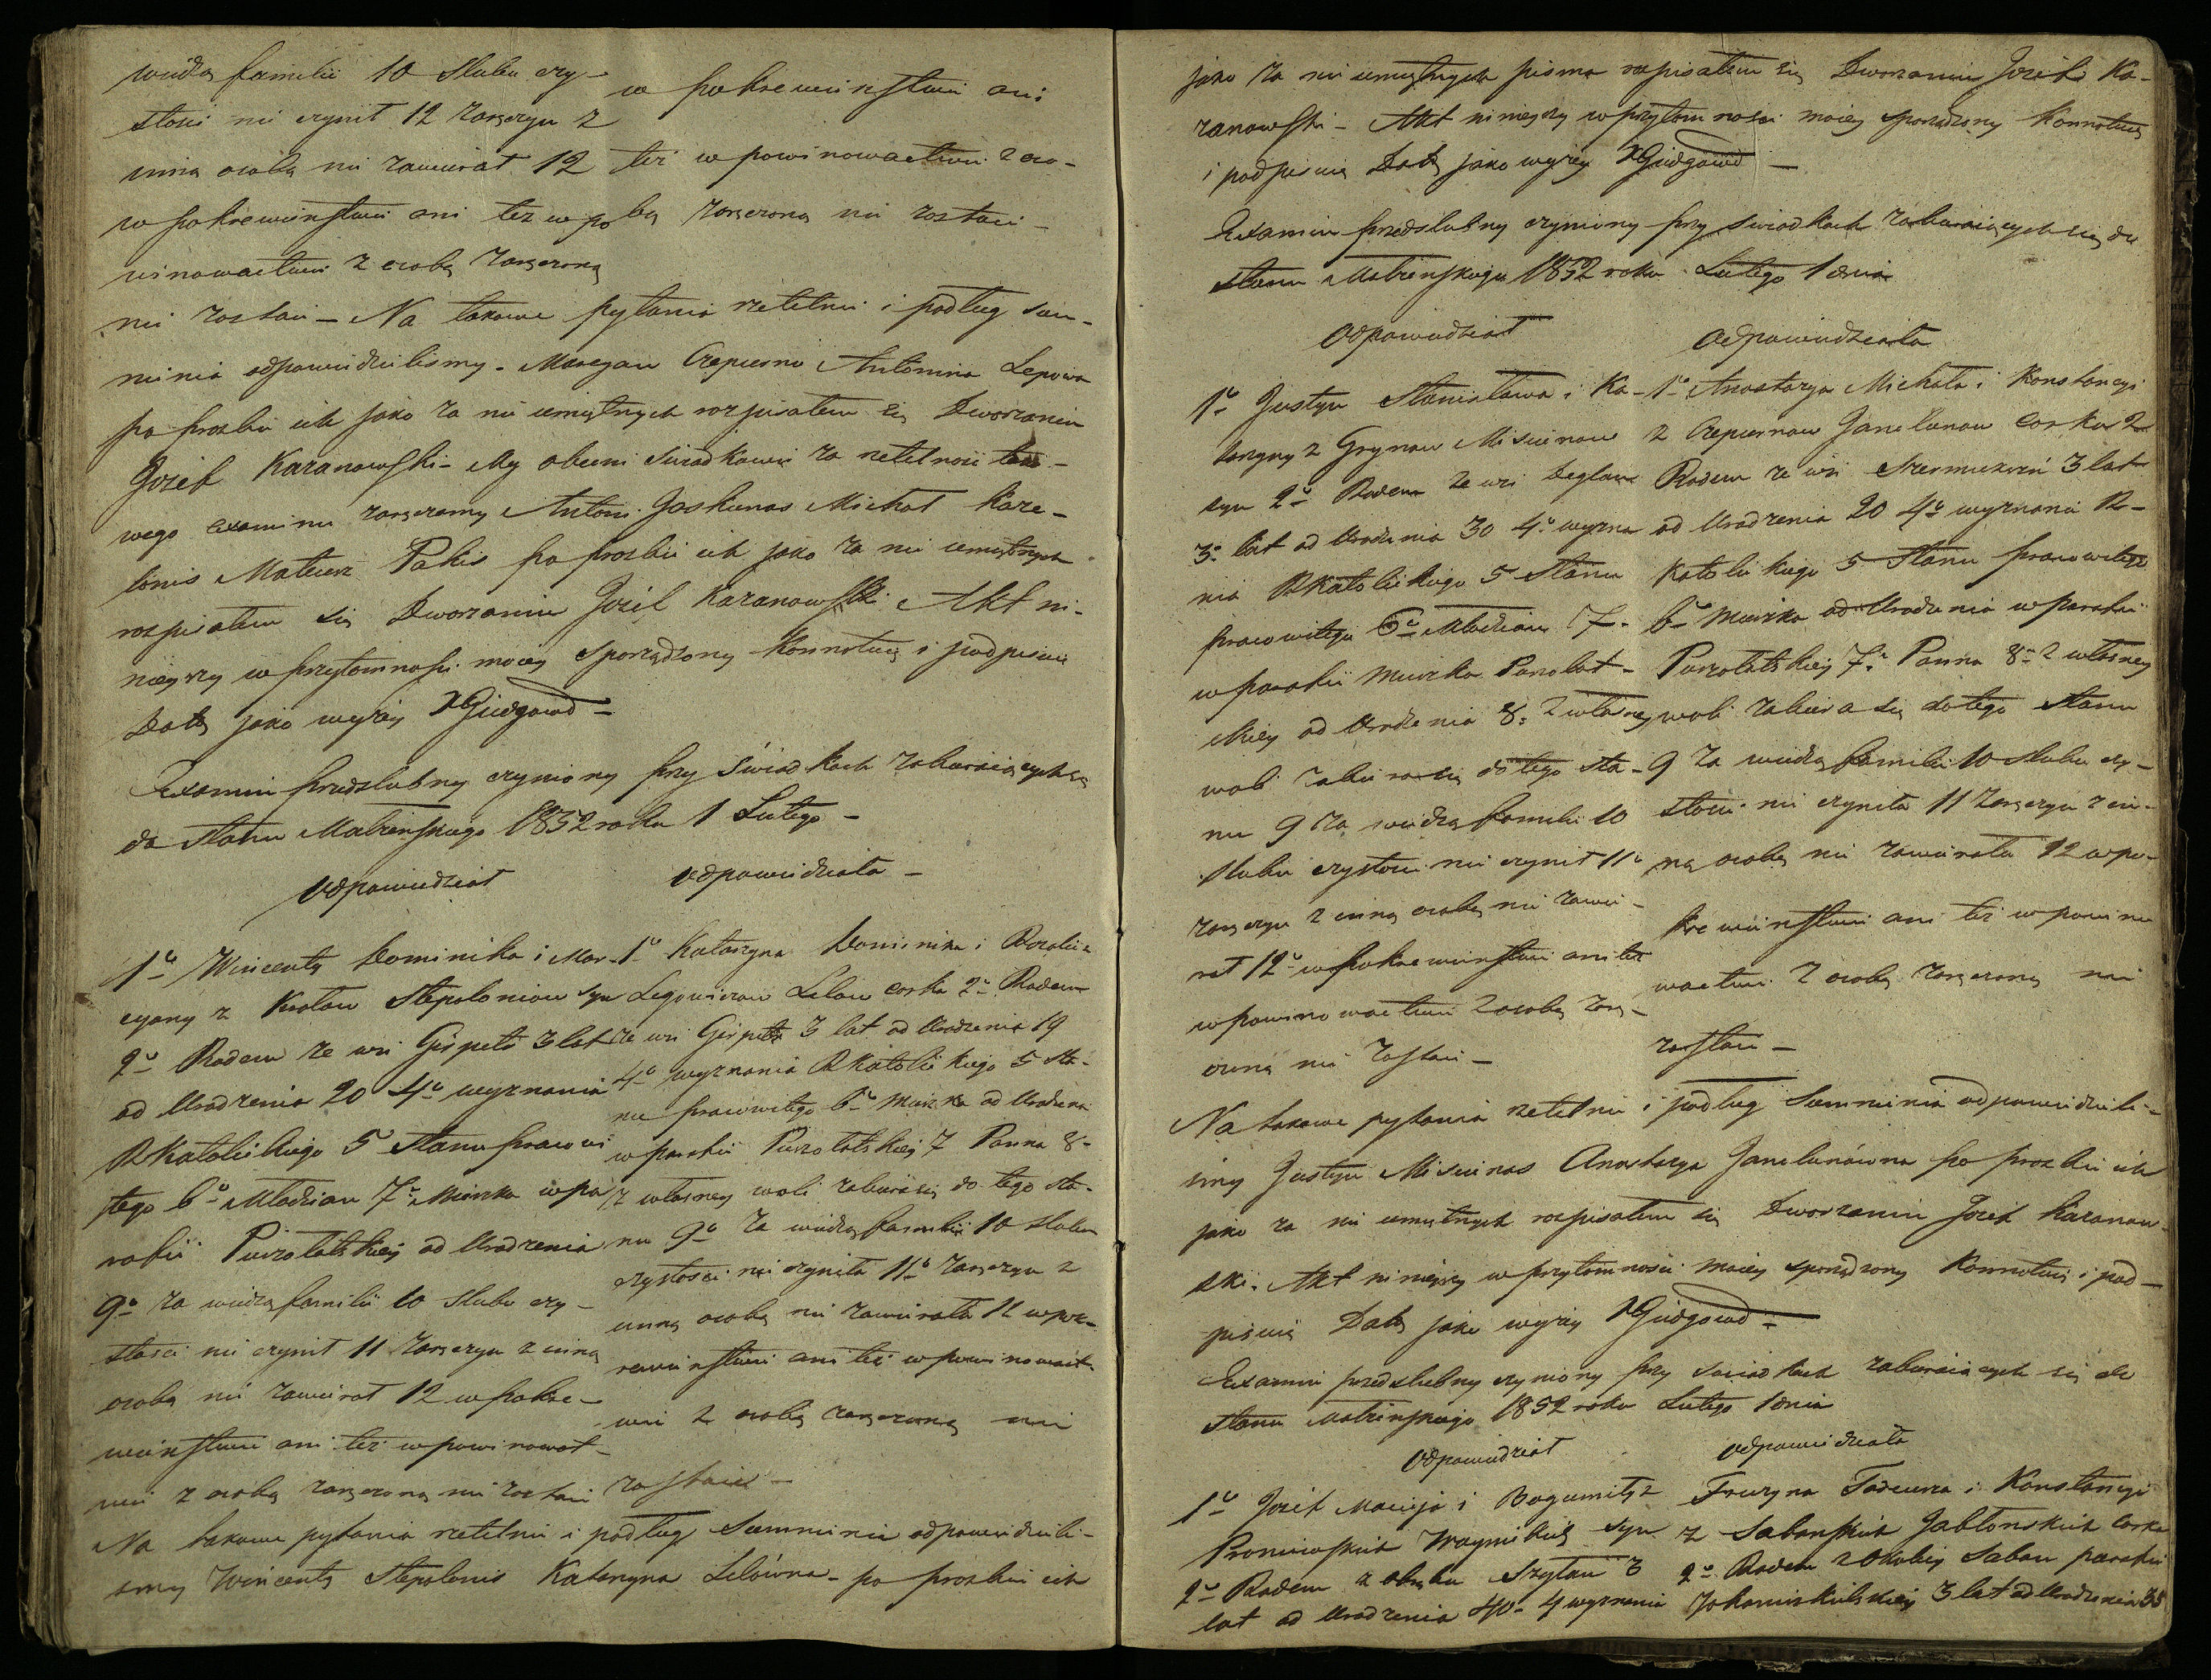 wiedzą familii 10 Slubu czy-
stości nie czynił 12 zaręczyn z
inną osobą nie zawierał 12
w pokrewieństwie ani tez w po
winowactwie z osobą zaręczoną
w pokrewieństwie ani
też w powinowactwie z oso-
bą zaręczoną nie zostaie-
nie zostaie – Na takowe pytania rzetelnie i podług sum-
nienia odpowiedzielismy. – Antonina
po prozbie ich jako za nie umiętnych rozpisałem się Dworzanin
Jozef Karanowski – My obecni Swiadkowie za rzetelność tako-
wego Examinu zaręczamy Antoni Jaskunas Michał Kaze-
lonis Mateusz Pakis po prozbie ich jako za nie umiętnych
rozpisałem się Dworzanin Jozef Karanowski Akt ni-
nieyszy w przytomnosci moiey sporządzony Konnotuię i podpisuię
Datą jako wyżey XGiedgowd –
Examin przedslubny czyniony przy świadkach zabieraiących się
do stanu Małżenskiego 1852 roku 1 Lutego –
Odpowiedział
1° Wincenty Dominika i Mar-
cyany z Stepoloniow syn
2° Rodem ze wsi Girpeto 3 lat
od Urodzenia 20 4° wyznania
RKatolickiego 5 Stanu pracowi
tego 6° Młodzian 7° Mieszka w pa
rafii Puszołatskiey od Urodzenia
9° za wiedzą familii 10 Slubu czy-
stosci nie czynił 11 Zaręczyn z inną
osobą nie zawierał 12 w pokre-
wieństwie ani też w powinowat-
wie z osobą zaręczoną nie zostaie
Odpowiedziała –
1° Katarzyna Dominika i Rozalii z
Lelow corka 2° Rodem
ze wsi Girpeto 3 lat od Urodzenia 19
4° wyznania RKatolickiego 5 Sta-
nu pracowitego 6° Mieszka od Urodzenia
w parafii Puszołatskiey 7 Panna 8-
z własney woli zabierasię do tego sta-
nu 9° za wiedzą familii 10 slubu
czystosci nie czyniła 11° Zaręczyn z
inną osobą nie zawierała 12 w pok-
rewieństwie ani też w powinowact-
wie z osobą zaręczoną nie
zostaie –
Na takowe pytania rzetelnie i podług Sumnienia odpowiedzieli-
smy Wincenty Stepolonis Katarzyna Lelówna – po prozbie ich
jako za nie umiętnych pisma rozpisałem się Dworzanin Jozef Ka-
ranowski – Akt ninieyszy w przytomnosci moiey sporządzony Konnotuię
i podpisuię Datą jako wyżey XGiedgowd –
Examin przedslubny czyniony przy swiadkach zabieraiących się do
stanu Małżenskiego 1852 roku Lutego 1 dnia
Odpowiedział
1° Justyn Stanisława i Ka-
tarzyny z Grynow Misiunow
syn 2° Rodem ze wsi
3° lat od Urodzenia 30 4° wyzna
nia RKatolickiego 5 Stanu
pracowitego 6° Młodzian 7-
w parafii mieszka Puszołat-
skiey od Urodzenia 8° z własney
woli zabierasię do tego sta-
nu 9 za wiedzą familii 10
Slubu czystosci nie czynił 11°
zaręczyn z inną osobą nie zawie-
rał 12° w pokrewieństwie ani też
w powinowactwie z osobą zarę-
czoną nie zostaie –
Odpowiedziała
1° Anastazya Michała i Konstancyi
z Janelunow corka 2
Rodem ze wsi 3 lat
od Urodzenia 20 4° wyznania R-
Katolickiego 5 Stanu pracowitego
6° Mieszka od Urodzenia w parafii
Puszołatskiey 7° Panna 8° z własney
woli zabiera się do tego stanu
9 za wiedzą familii 10 Slubu czy-
stosci nie czyniła 11 Zaręczyn z in-
ną osobą nie zawierała 12 w po-
krewieństwie ani też w powino
wactwie z osobą zaręczoną nie
zostaie –
Na takowe pytania rzetelnie i podług Sumnienia odpowiedzieli-
smy Justyn Misiunas Anastazya Janelunówna po prozbie ich
jako za nie umiętnych rozpisałem się Dworzanin Jozef Karanow-
ski. Akt ninieyszy w przytomnosci moiey sporządzony Konnotuię i pod-
pisuię Datą jako wyżey XGiedgowd –
Examin przedslubny czyniony przy swiadkach zabieraiących się do
stanu Małżenskiego 1852 roku Lutego 1 dnia
Odpowiedział
1° Jozef Macieja i Bogumiły z
syn
2° Rodem z 3
lat od Urodzenia 40- 4 wyznania
Odpowiedziała
Fruzyna Tadeusza i Konstancyi
z Jabłonskich corka
2° Rodem z Okolicy Saban parafii
3 lat od Urodzenia 35